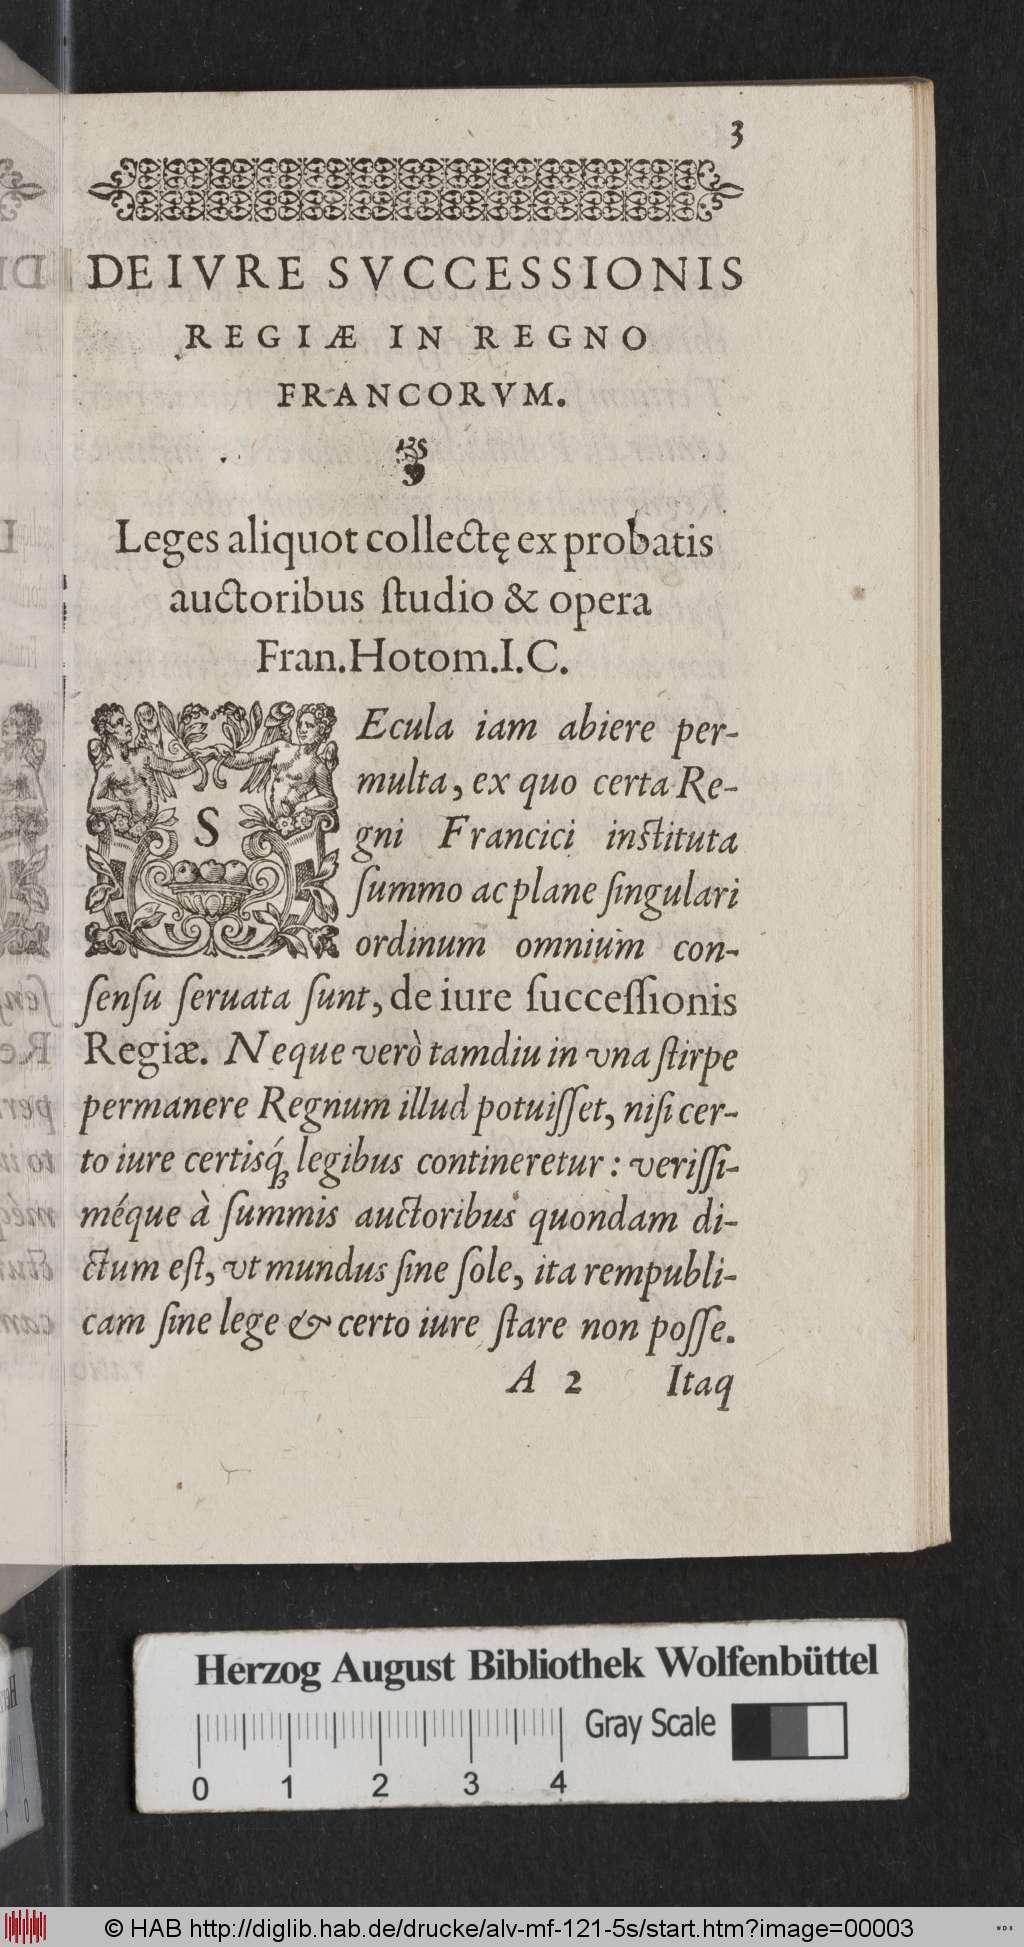 3
DE IVRE SVCCESSIONIS
REGIÆ IN REGNO
FRANCORVM.
Leges aliquot collectę ex probatis
auctoribus ſtudio & opera
Fran. Hotom. I. C.
SEcula iam abiere per-
multa, ex quo certa Re-
gni Francici inſtituta
ſummo ac plane ſingulari
ordinum omnium con-
ſenſu ſeruata ſunt, de iure ſucceſſionis
Regiæ. Neque verò tamdiu in vna ſtirpe
permanere Regnum illud potuiſſet, niſi cer-
to iure certisq́; legibus contineretur: veriſſi-
méque à ſummis auctoribus quondam di-
ctum eſt, vt mundus ſine ſole, ita rempubli-
cam ſine lege & certo iure ſtare non poſſe.
A 2 Itaq
Herzog August Bibliothek Wolfenbüttel
Gray Scale
0 1 2 3 4
© HAB http://diglib.hab.de/drucke/alv-mf-121-5s/start.htm?image=00003